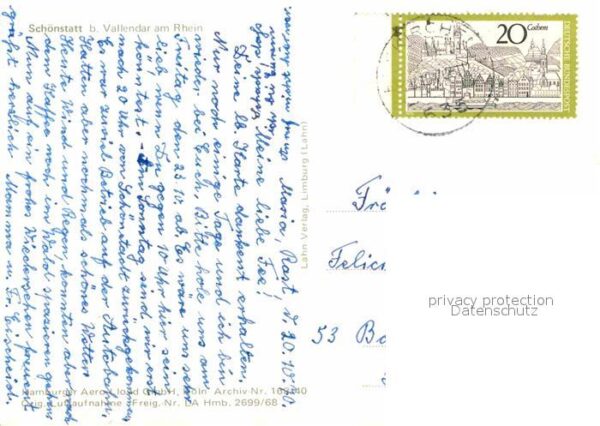 Schönstatt b. Vallendar am Rhein
Maria, Rast, d. 20. 10. 70.
Meine liebe Fee!
Deine lb. Karte dankend erhalten.
Nur noch einige Tage und ich bin
wieder bei Euch. Bitte hole uns am
Freitag den 23. 10. ab. Es wäre uns sehr
lieb wenn Du gegen 10 Uhr hier sein
könntest. Am Sonntag sind wir erst
nach 20 Uhr von Schönstatt zurückgekommen.
Es war zuviel Betrieb auf der Autobahn,
Hatten aber nochmals schönes Wetter.
Heute Wind und Regen, konnten aber nach
dem Kaffee noch im Wald spazieren gehen.
Nun auf ein frohes Wiedersehen freuend
grüßt herzlich Mamma u. Fr.
Hamburger Aero-Lloyd GmbH, Köln Archiv-Nr.
Orig. Luftaufnahme · Freig.-Nr. LA Hmb. 2699/68
Lahn Verlag, Limburg (Lahn)
20 Cochem
DEUTSCHE BUNDESPOST
Frä
Felici
53 Bo
privacy protection
Datenschutz